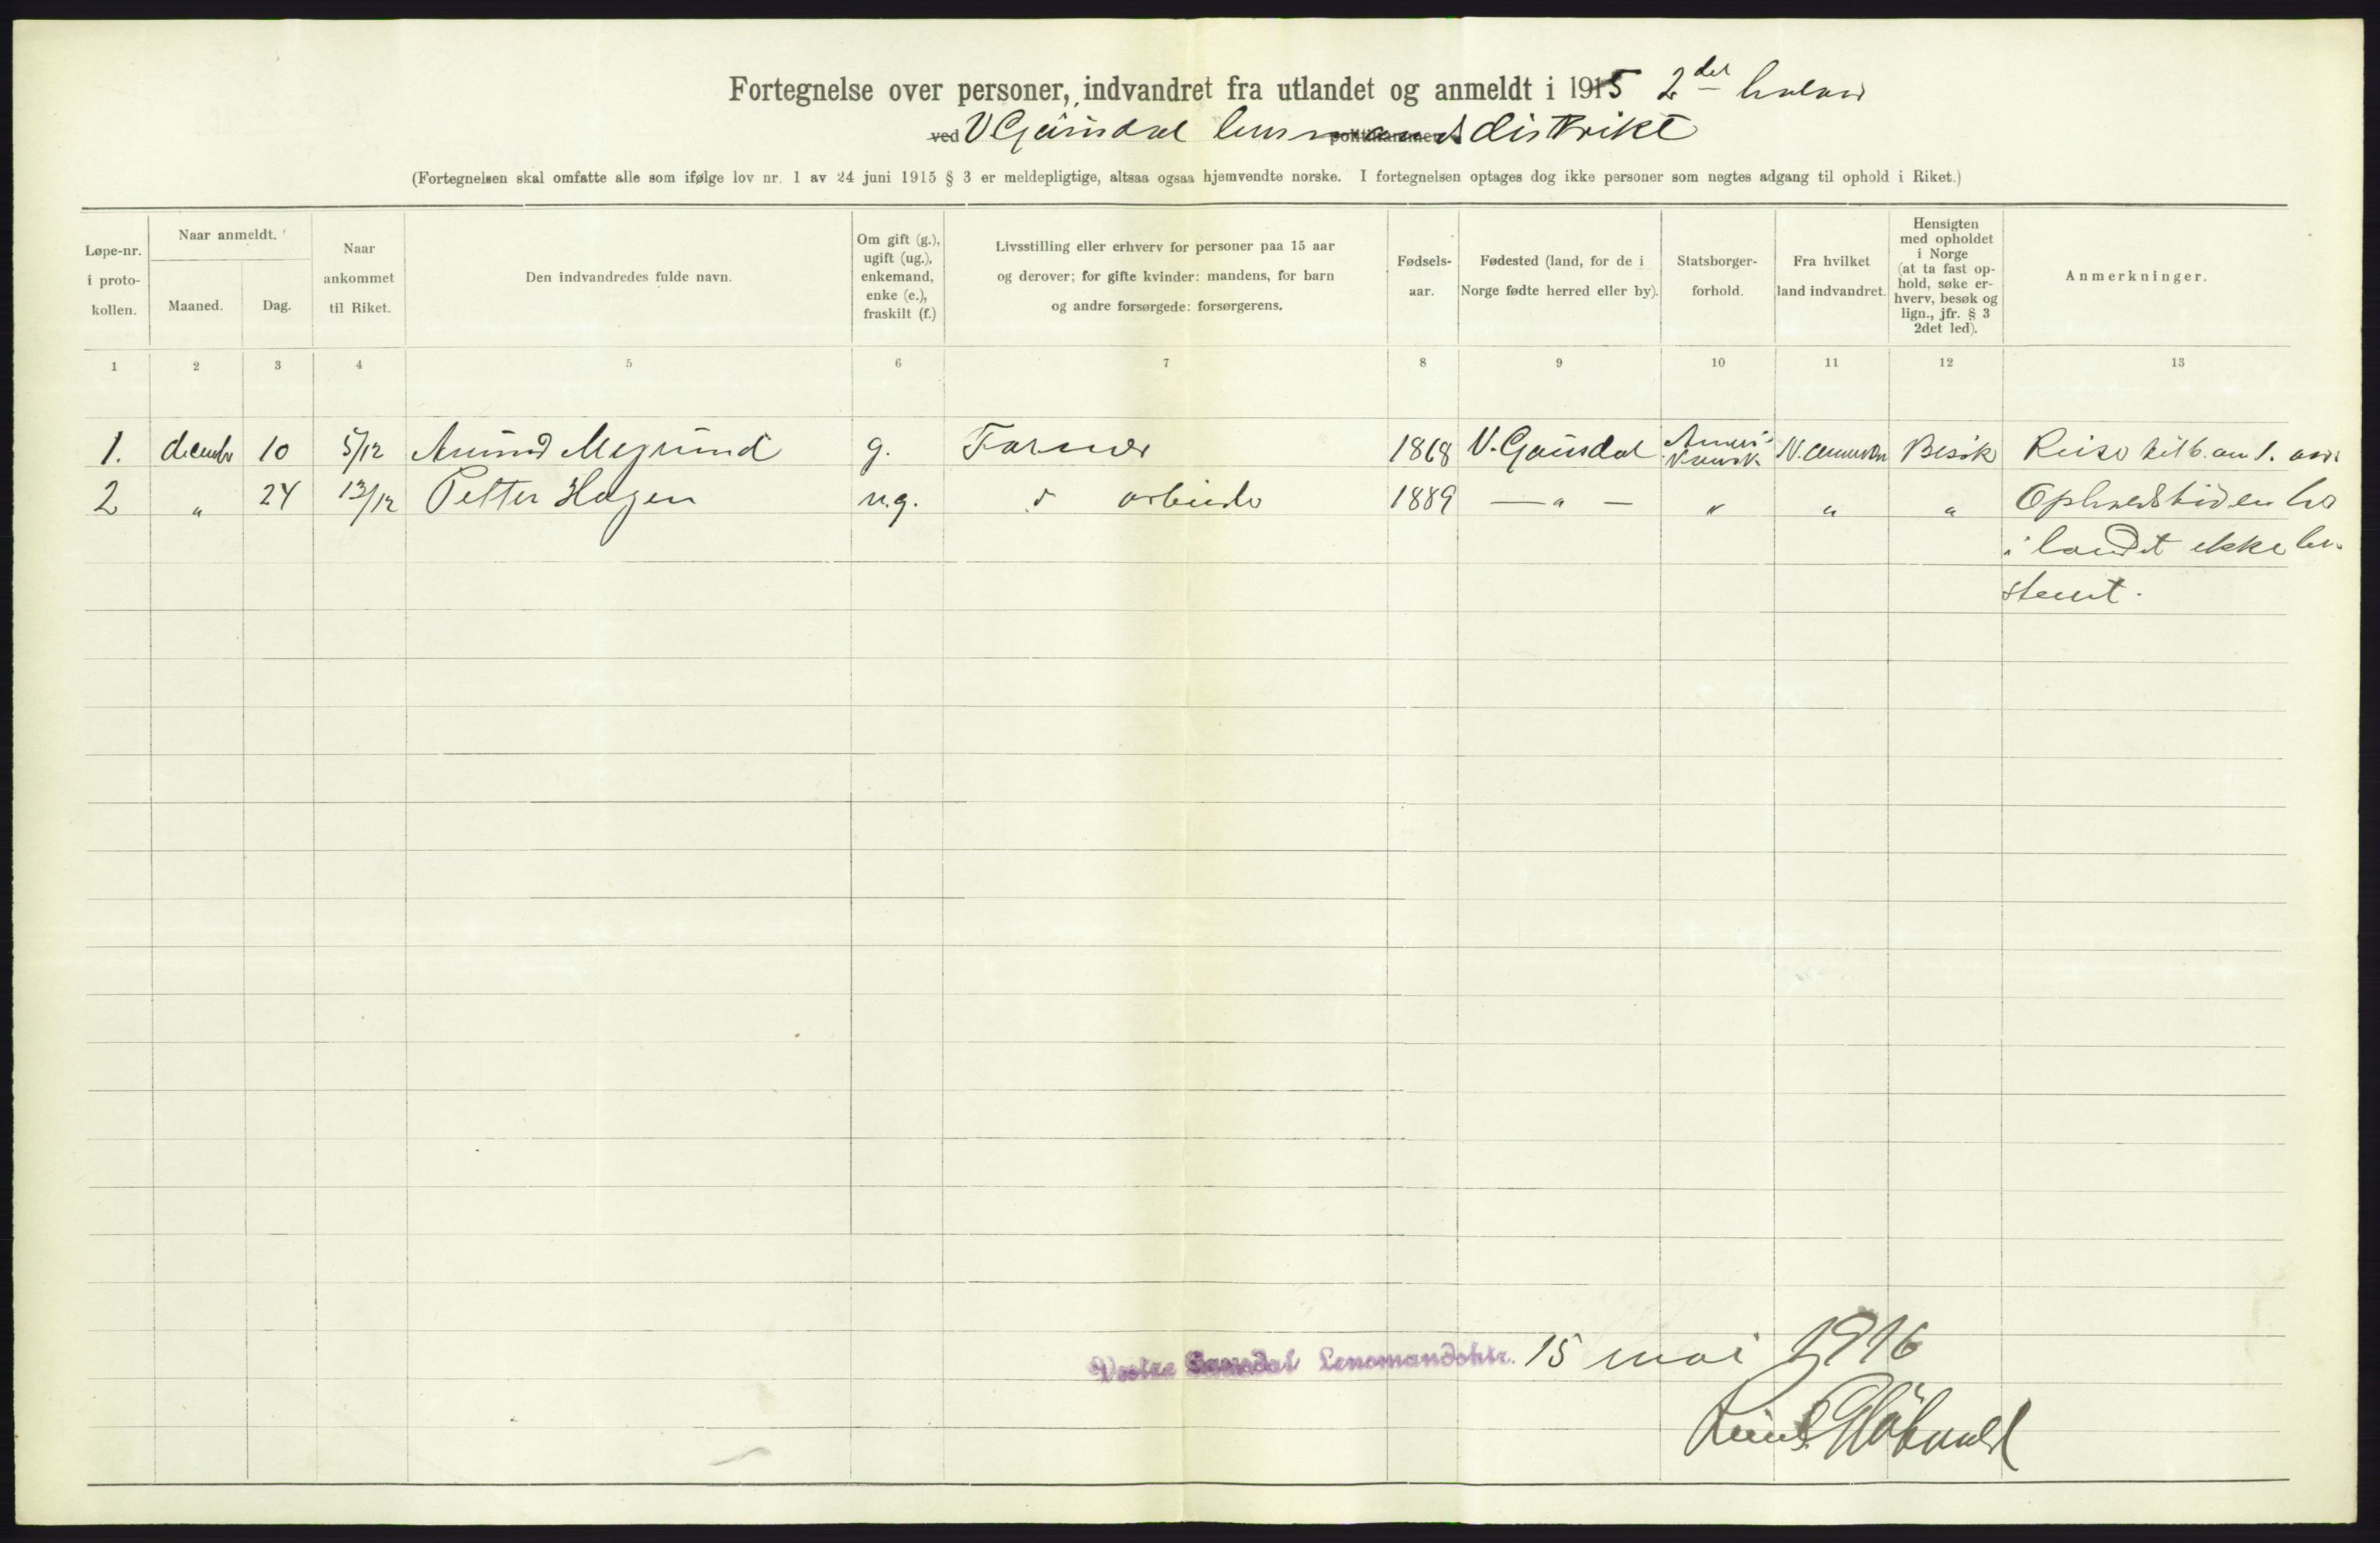 Fortegnelse over personer, indvandret fra utlandet og anmeldt i 1915 2det halvaar
ved V Gausdal lensmandsdistrikt
(Fortegnelsen skal omfatte alle som ifølge lov nr. 1 av 24 juni 1915 § 3 er meldepligtige, altsaa ogsaa hjemvendte norske. I fortegnelsen optages dog ikke personer som negtes adgang til ophold i Riket.)
Løpe-nr. i proto-kollen.
Naar anmeldt.
Maaned.
Dag.
Naar ankommet til Riket.
Den indvandredes fulde navn.
Om gift (g.), ugift (ug.), enkemand, enke (e.), fraskilt (f.)
Livsstilling eller erhverv for personer paa 15 aar og derover; for gifte kvinder: mandens, for barn og andre forsørgede: forsørgerens.
Fødsels-aar.
Fødested (land, for de i Norge fødte herred eller by).
Statsborger-forhold.
Fra hvilket land indvandret.
Hensigten med opholdet i Norge (at ta fast op-hold, søke er-hverv, besøk og lign., jfr. § 3 2det led).
Anmerkninger.
1 2 3 4 5 6 7 8 9 10 11 12 13
1. decembr 10 5/12 Amund Megrund g. Farmer 1868 V. Gausdal Ameri-kansk N. Amerika Besøk Reiso til
2 " 24 13/12 Petter Hagen ug. arbeider 1889 — " — " " " Opholdstiden her
i landet ikke be-
stemt.
Vestre Gausdal Lensmandsktr. 15 mai 1916